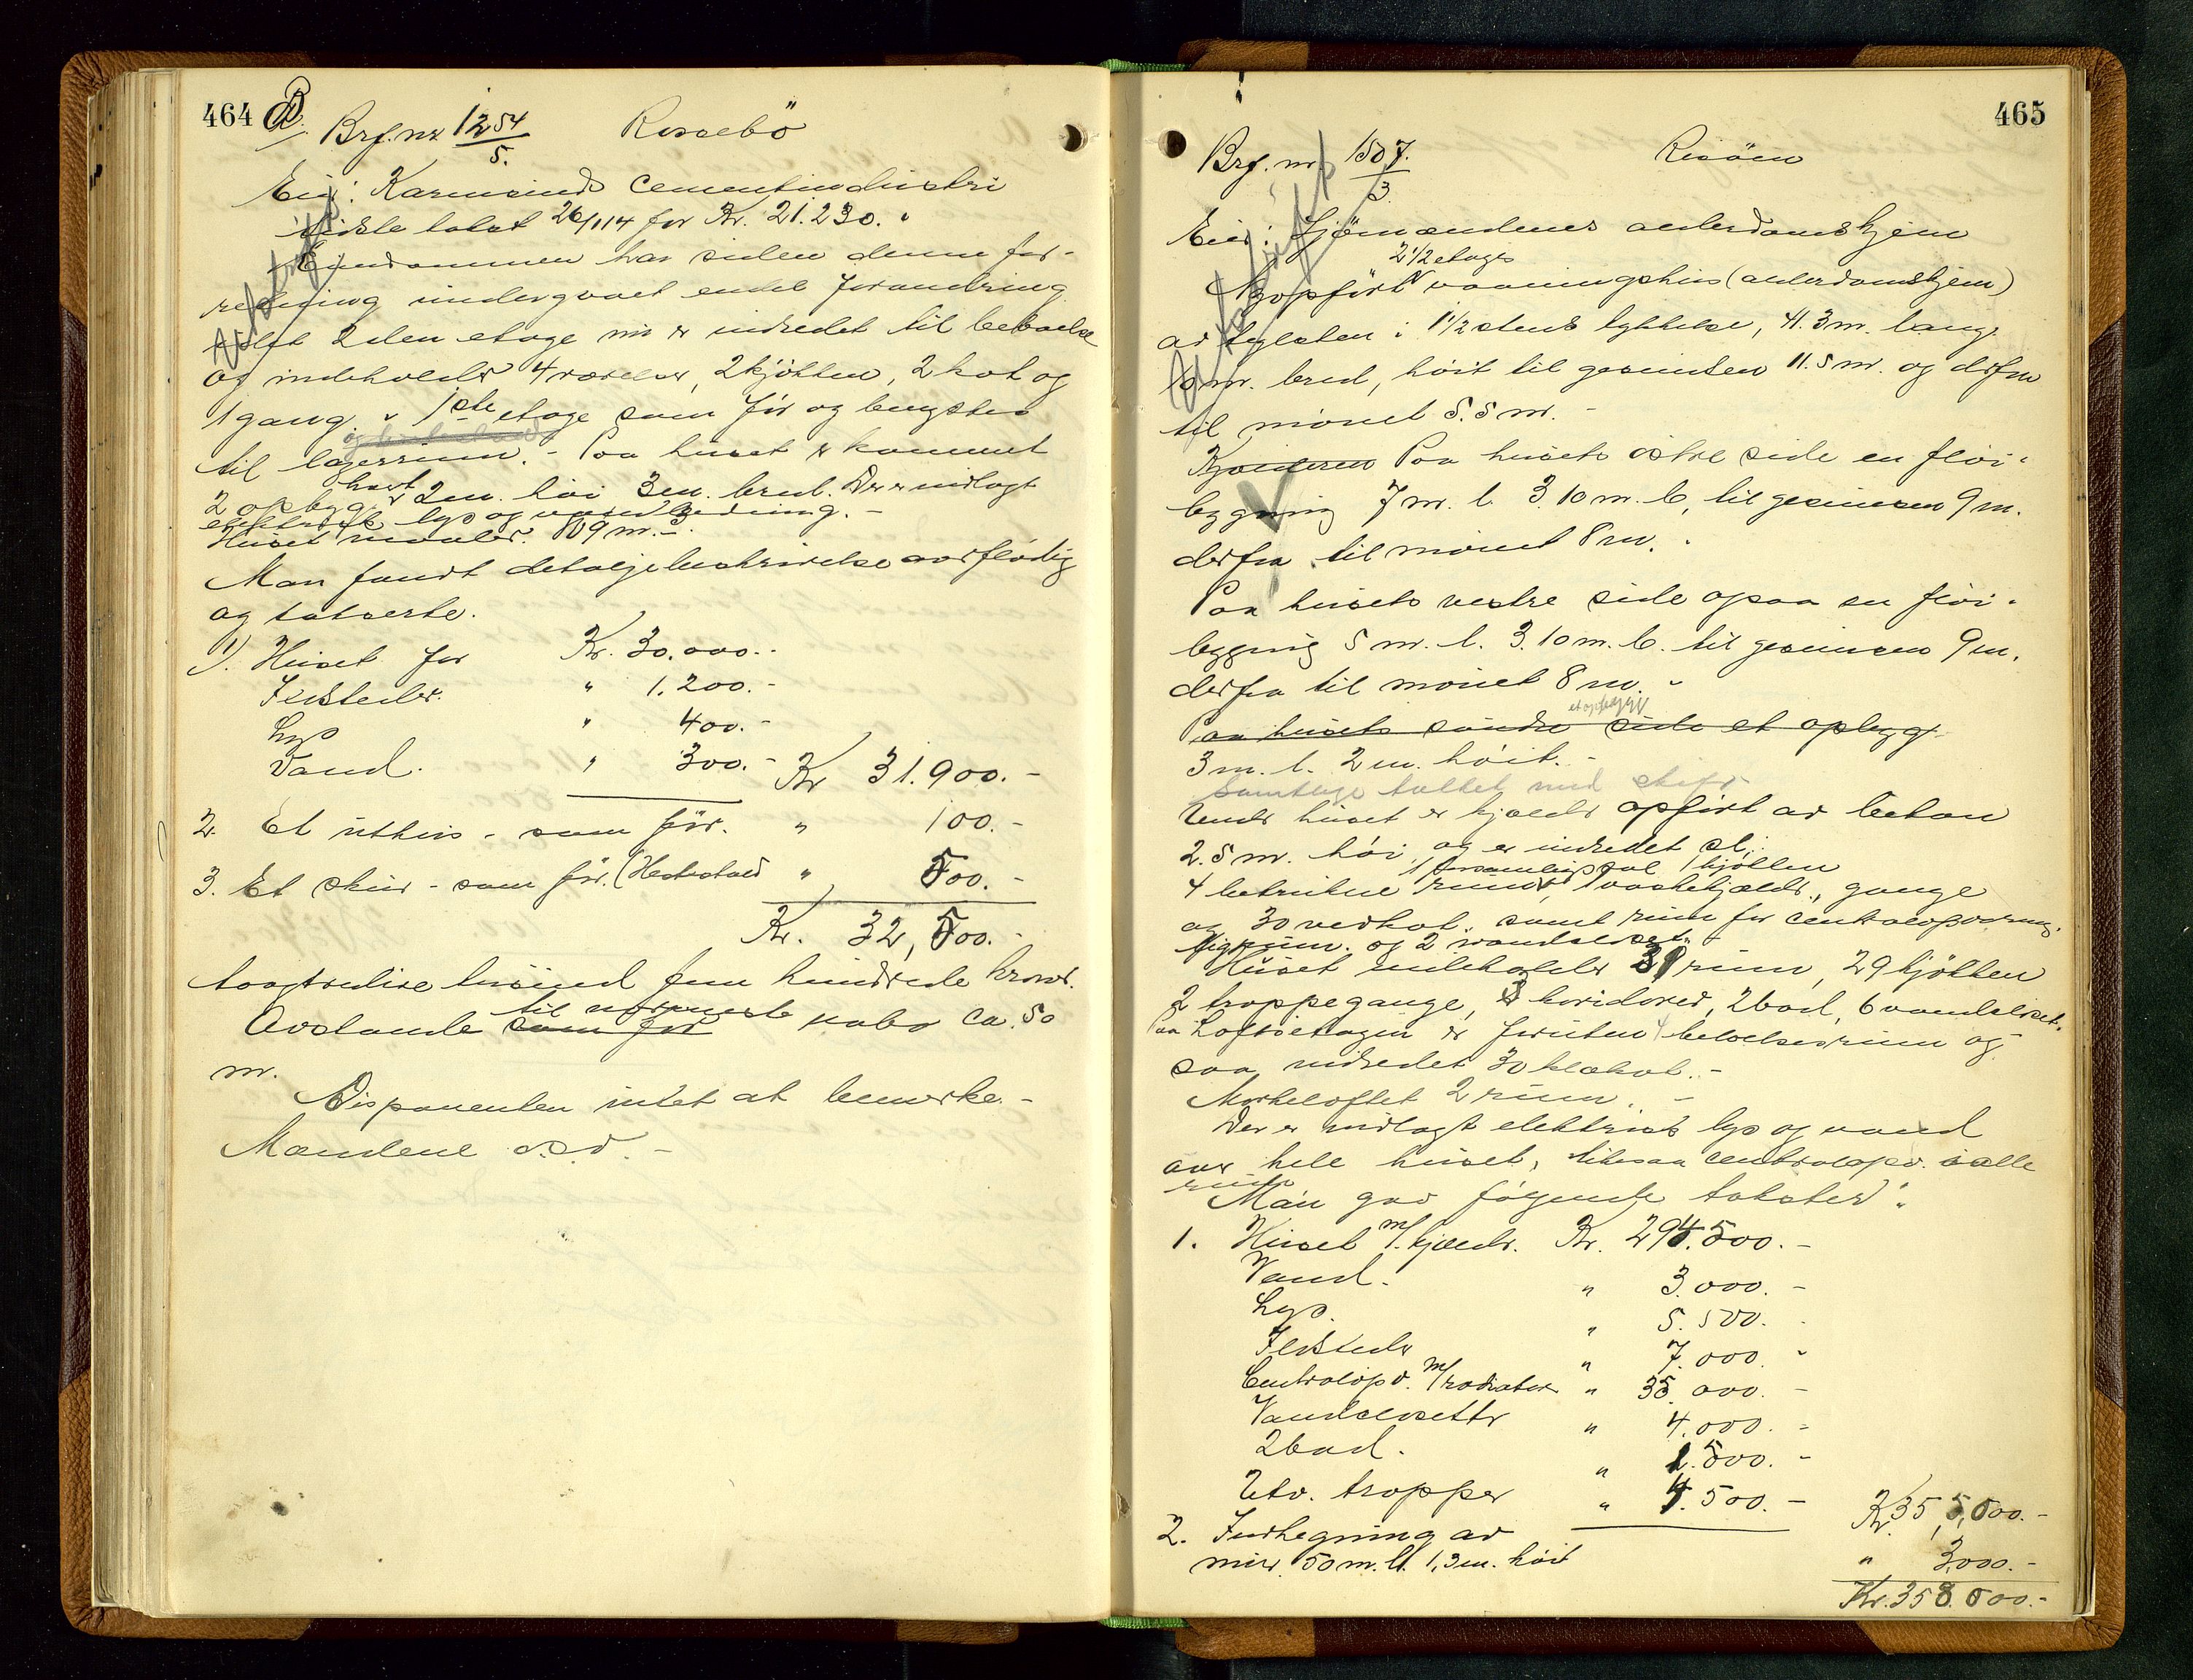 464
Brf.nr 1254/5. Rossebö
Eier: Karmsunds cementindustri
sidste takst 26/1 14 for Kr. 21.230. "
Eiendommen har siden denne for-
retning undergaaet endel forandring
idet 2den etage nu er indredet til beboelse
og indeholder 4 værelser, 2 kjökken, 2 kot og
1 gang. " 1ste etage som för og benyttes
til lagerrum. - Paa huset er kommet
2 opbygg hvert 2m. höi 3m. bred. Der er indlagt
elektrisk lys og vandledning. -
Huset maaler 809 m.3
Man fandt detaljebeskrivelse overflödig
og takserte.
1). Huset for Kr. 30.000.-
Ildsteder. " 1.200.-
Lys " 400.-
Vand. " 300.- Kr 31.900.-
2. Et uthus - som för. " 100.-
3. Et skur - som för. (Hestestald " 500.-
Kr. 32,500.-
toogtredive tusind fem hundrede kroner.
Avstande som för til nærmeste nabo ca. 50
m.
Disponenten intet at bemerke. -
Mændene o.s.v. -
465
Brf. nr. 1507./3. Risöen
Eier: Sjömændenes alderdomshjem
2 1/2 etages
Nyopfört vaaningshus (alderdomshjem)
av teglsten i 1 1/2 stens tykkelse, 41.3m. lang
m. bred, höit til gesimsen 11.5 m. og derfra
til mönet 5.5 m. -
Paa husets östre side en flöi-
bygning 7 m. l. 3.10 m. b, til gesimsen 9 m.
derfra til mönet 8 m. "
Paa husets vestre side ogsaa en flöi-
bygning 5 m. l. 3.10 m. b. til gesimsen 9 m.
derfra til mönet 8 m. "
et opbygg
Paa husets söndre side et opbygg
3 m. l. 2 m. höit. -
Samtlige tækket med skifer
Under huset er kjælder opfört av beton
2.5 m. höi, og er indredet til:
1 forsamlingssal 1 kjökken
4 betrukne rum, 1 vaskekjælder, gange
og 30 vedkot. samt rum for centralopvarmn.
ligrum. og 2 vandcloset. -
Huset indeholder 39 rum, 29 kjökken
2 trappegange, 3 koridorer, 2 bad, 6 vandcloset.
Loftsetagen er foruten 4 beboelsesrum og-
saa indredet 30 klækot. -
Mörkeloftet 2 rum. -
Der er indlagt elektrisk lys og vand
over hele huset, likesaa centralopv. i alle
rum
Man gav fölgende takster:
1. Huset m/ kjælder. Kr. 294.500.-
Vand. " 3.000.-
Lys. " 5.500.-
Ildsteder " 7.000.-
Centralopv. m/ radiatorer " 35.000.-
Vandclosetter " 4.000.-
2 bad. " 1.500.-
Utv. trapper " 4.500.- Kr 355,000.-
2. Indhegning av
mur 50 m. l. 1,3 m. höit " 3,000.-
Kr. 358.000.-